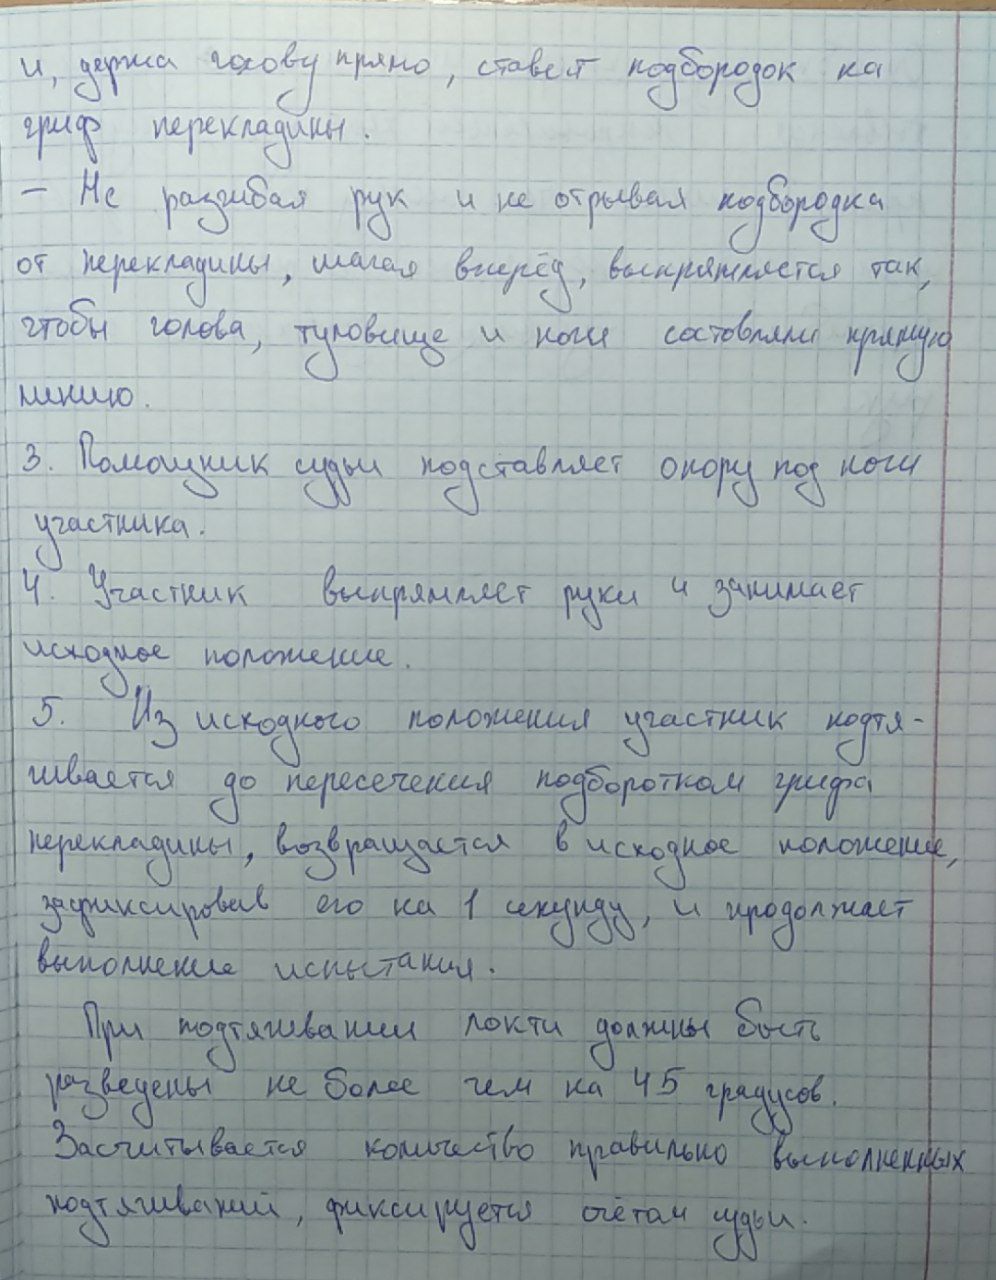 и, держа голову прямо, ставит подбородок на
гриф перекладины.
– Не разгибая рук и не отрывая подбородка
от перекладины, шагая вперёд, выпрямляется так,
чтобы голова, туловище и ноги составляли прямую
линию.
3. Помощник судьи подставляет опору под ноги
участника.
4. Участник выпрямляет руки и занимает
исходное положение.
5. Из исходного положения участник подтя-
гивается до пересечения подбородком грифа
перекладины, возвращается в исходное положение,
зафиксировав его на 1 секунду, и продолжает
выполнение испытания.
При подтягивании локти должны быть
разведены не более чем на 45 градусов.
Засчитывается количество правильно выполненных
подтягиваний, фиксируется счётом судьи.